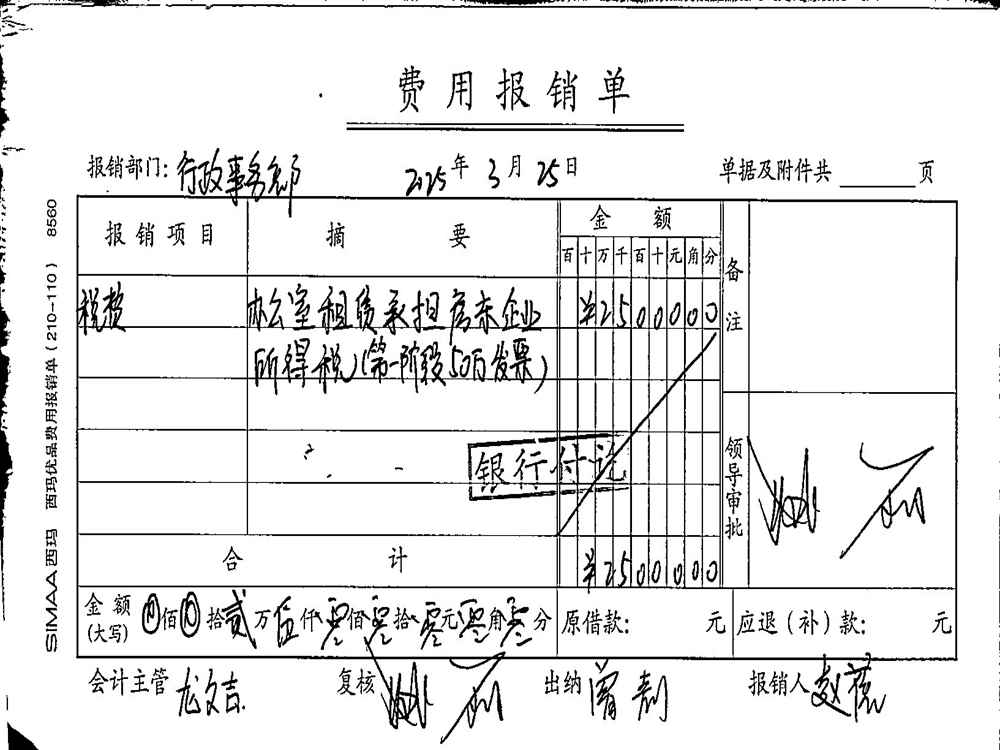 费用报销单
报销部门：行政事务部 2025年3月25日 单据及附件共 页
报销项目 摘要 金额 备注
百十万千百十元角分
税费 办公室租赁承担房东企业 ¥2500000
所得税(第一阶段50万发票)
银行付讫
领导审批
合计 ¥2500000
金额(大写) 佰 拾贰万伍仟零佰零拾零元零角零分 原借款： 元 应退（补）款： 元
会计主管 龙文吉 复核 出纳 报销人 赵
SIMAA西玛 西玛优品费用报销单（210-110） 8560